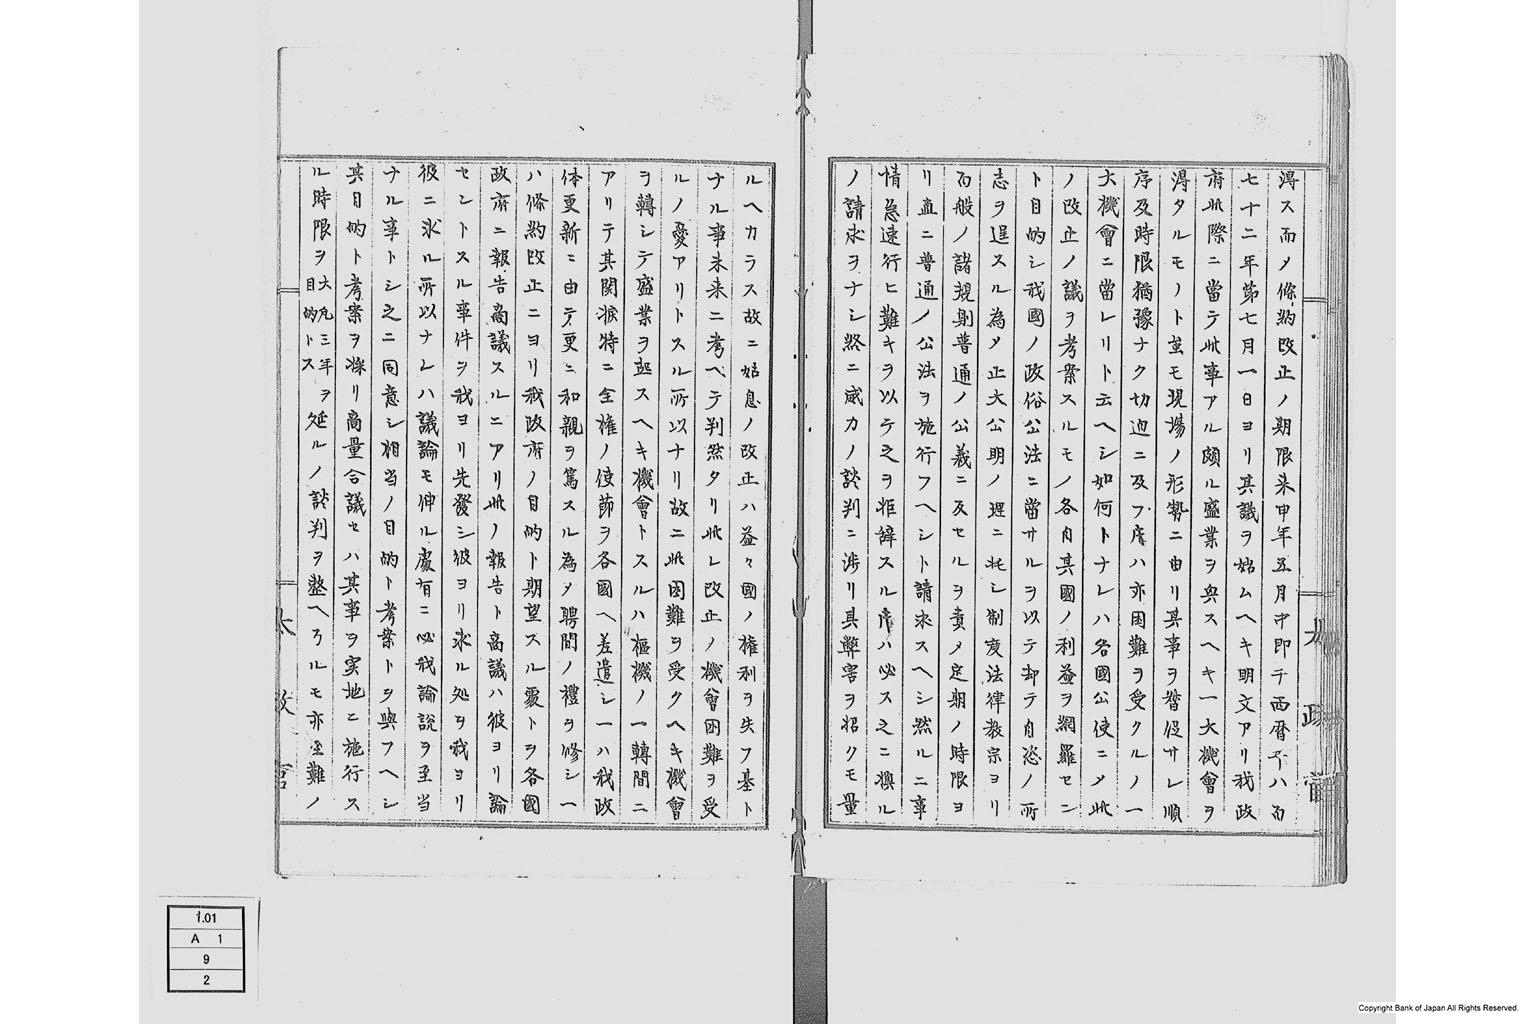 得ス而ノ條約改正ノ期限来申年五月中即チ西暦千八百
七十二年第七月一日ヨリ其議ヲ始ムヘキ明文アリ我政
府此際ニ當テ此事アル頗ル盛業ヲ興スヘキ一大機會ヲ
得タルモノト雖モ現場ノ形勢ニ由リ其事ヲ督促サレ順
序及時限猶豫ナク切迫ニ及フ庤ハ亦困難ヲ受クルノ一
大機會ニ當レリト云ヘシ如何トナレハ各國公使ニメ此
ノ改正ノ議ヲ考案スルモノ各自其國ノ利益ヲ網羅セン
ト目的シ我國ノ政俗公法ニ當サルヲ以テ却テ自恣ノ所
志ヲ逞スル為メ正大公明ノ理ニ托シ制度法律教宗ヨリ
百般ノ諸規則普通ノ公義ニ反セルヲ責メ定期ノ時限ヨ
リ直ニ普通ノ公法ヲ施行フヘシト請求スヘシ然ルニ事
情急速行ヒ難キヲ以テ之ヲ拒辞スル庤ハ必ス之ニ換ル
ノ請求ヲナシ終ニ威力ノ談判ニ渉リ其弊害ヲ招クモ量
太政官
ルヘカラス故ニ姑息ノ改正ハ益々國ノ權利ヲ失フ基ト
ナル事未来ニ考ヘテ判然タリ此レ改正ノ機會困難ヲ受
ルノ憂アリトスル所以ナリ故ニ此困難ヲ受クヘキ機會
ヲ轉シテ盛業ヲ起スヘキ機會トスルハ樞機ノ一轉間ニ
アリテ其関涙特ニ全權ノ使節ヲ各國ヘ差遣シ一ハ我政
体更新ニ由テ更ニ和親ヲ篤スル為メ聘問ノ禮ヲ修シ一
ハ條約改正ニヨリ我政府ノ目的ト期望スル処トヲ各國
政府ニ報告商議スルニアリ此ノ報告ト商議ハ彼ヨリ論
セントスル事件ヲ我ヨリ先發シ彼ヨリ求ル処ヲ我ヨリ
彼ニ求ル所以ナレハ議論モ伸ル處有ニ必我論説ヲ至当
ナル事トシ之ニ同意シ相当ノ目的ト考案トヲ與フヘシ
其目的ト考案ヲ採リ商量合議セハ其事ヲ実地ニ施行ス
ル時限ヲ大凡三年ヲ目的トス延ルノ談判ヲ整ヘラルモ亦至難ノ
太政官
1.01
A 1
9
2
Copyright Bank of Japan All Rights Reserved.